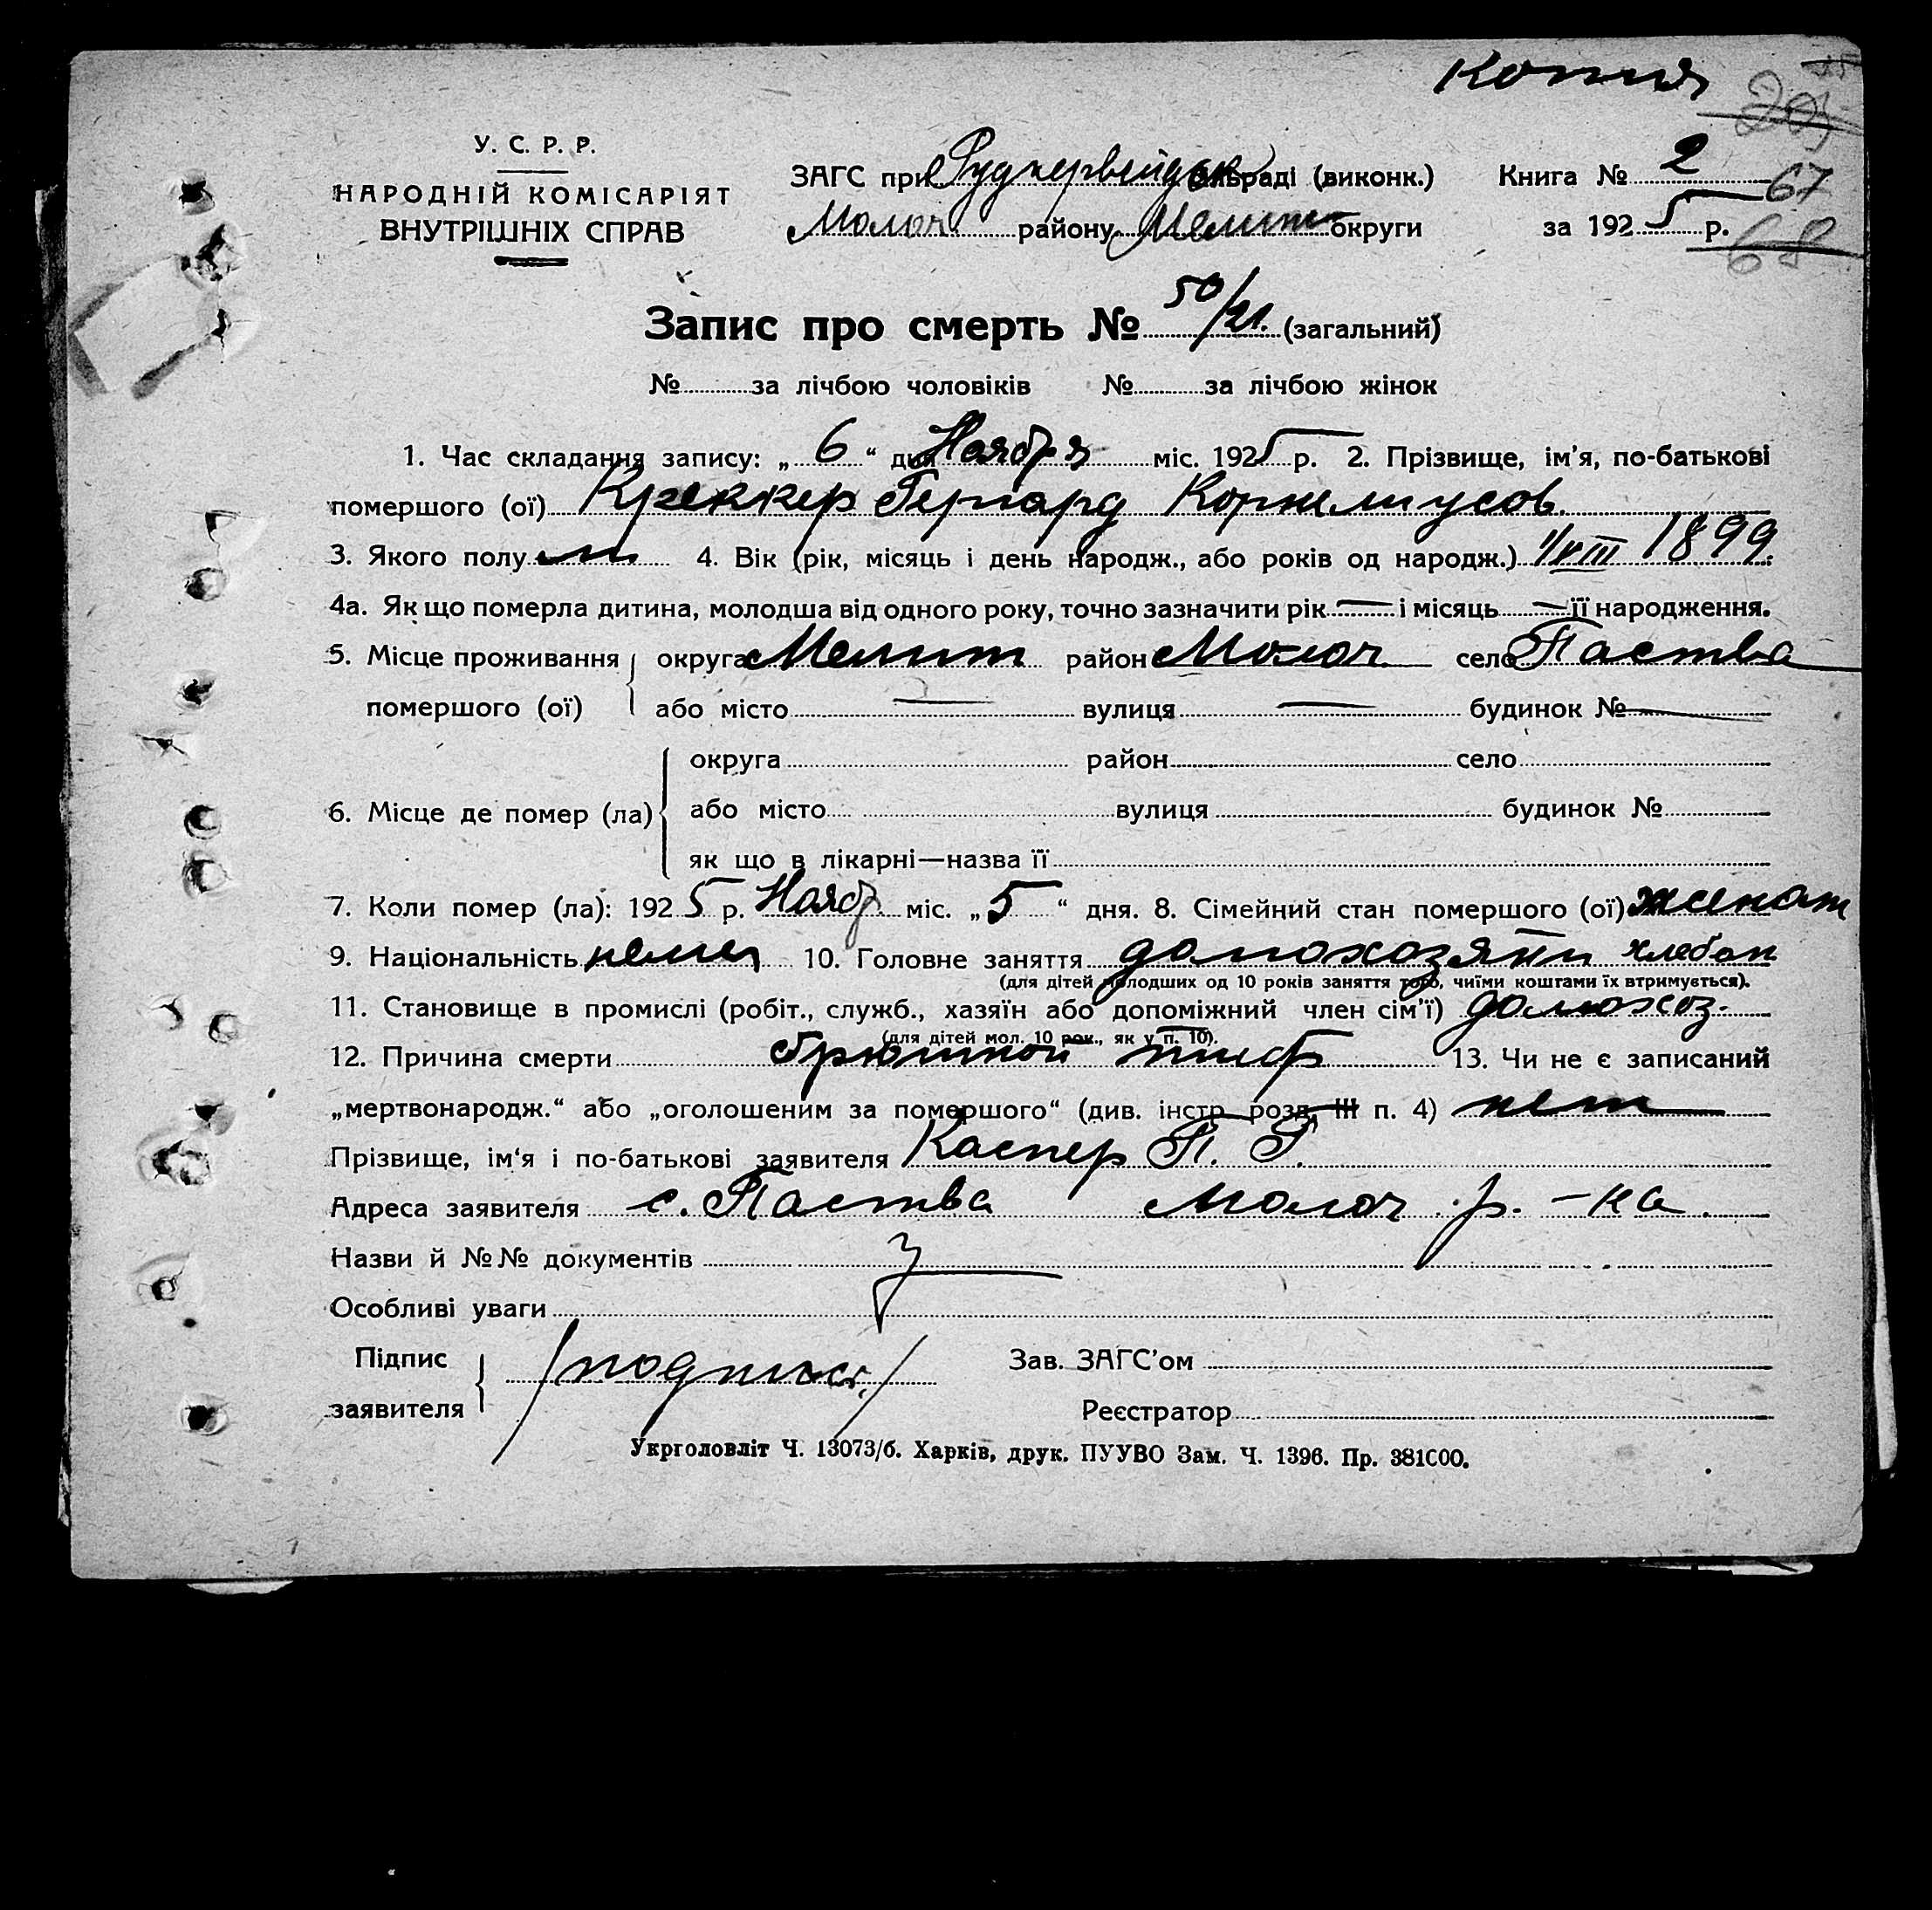 Копия
203
У. С. Р. Р.
НАРОДНІЙ КОМІСАРІЯТ
ВНУТРІШНІХ СПРАВ
ЗАГС при Рукнервейдск сільраді (виконк.) Книга № 2
67
Молоч району Мелит округи за 1925 р.
68
Запис про смерть № 50/21. (загальний)
№ за лічбою чоловіків № за лічбою жінок
1. Час складання запису: „ 6 “ дня Ноября міс. 1925 р. 2. Прізвище, ім'я, по-батькові
помершого (ої) Креккер Гергард Корнелиусов.
3. Якого полу м 4. Вік (рік, місяць і день народж., або років од народж.) 1/VIII 1899.
4а. Як що померла дитина, молодша від одного року, точно зазначити рік — і місяць — її народження.
5. Місце проживання округа Мелит район Молоч село Паства
помершого (ої) або місто — вулиця — будинок № —
округа район село
6. Місце де помер (ла) або місто вулиця будинок №
як що в лікарні—назва її
7. Коли помер (ла): 1925 р. Нояб. міс. „ 5 “ дня. 8. Сімейний стан помершого (ої) женат
9. Національність немец 10. Головне заняття домохозяин хлебоп
(для дітей молодших од 10 років заняття того, чиїми коштами їх втримується).
11. Становище в промислі (робіт., служб., хазяїн або допоміжний член сім'ї) домохоз.
(для дітей мол. 10 рок., як у п. 10).
12. Причина смерти брюшной тиф 13. Чи не є записаний
„мертвонародж.“ або „оголошеним за помершого“ (див. інстр. розд. III п. 4) нет
Прізвище, ім'я і по-батькові заявителя Каспер П. Г.
Адреса заявителя с. Паства Молоч р.-ка.
Назви й №№ документів
Особливі уваги
Підпис /подпись/ Зав. ЗАГС'ом
заявителя Реєстратор
Укрголовліт Ч. 13073/б. Харків, друк. ПУУВО Зам. Ч. 1396. Пр. 381С00.